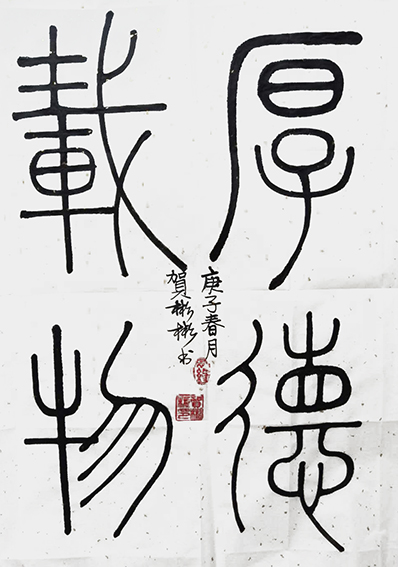 厚德
載物
庚子春月
賀彬彬书